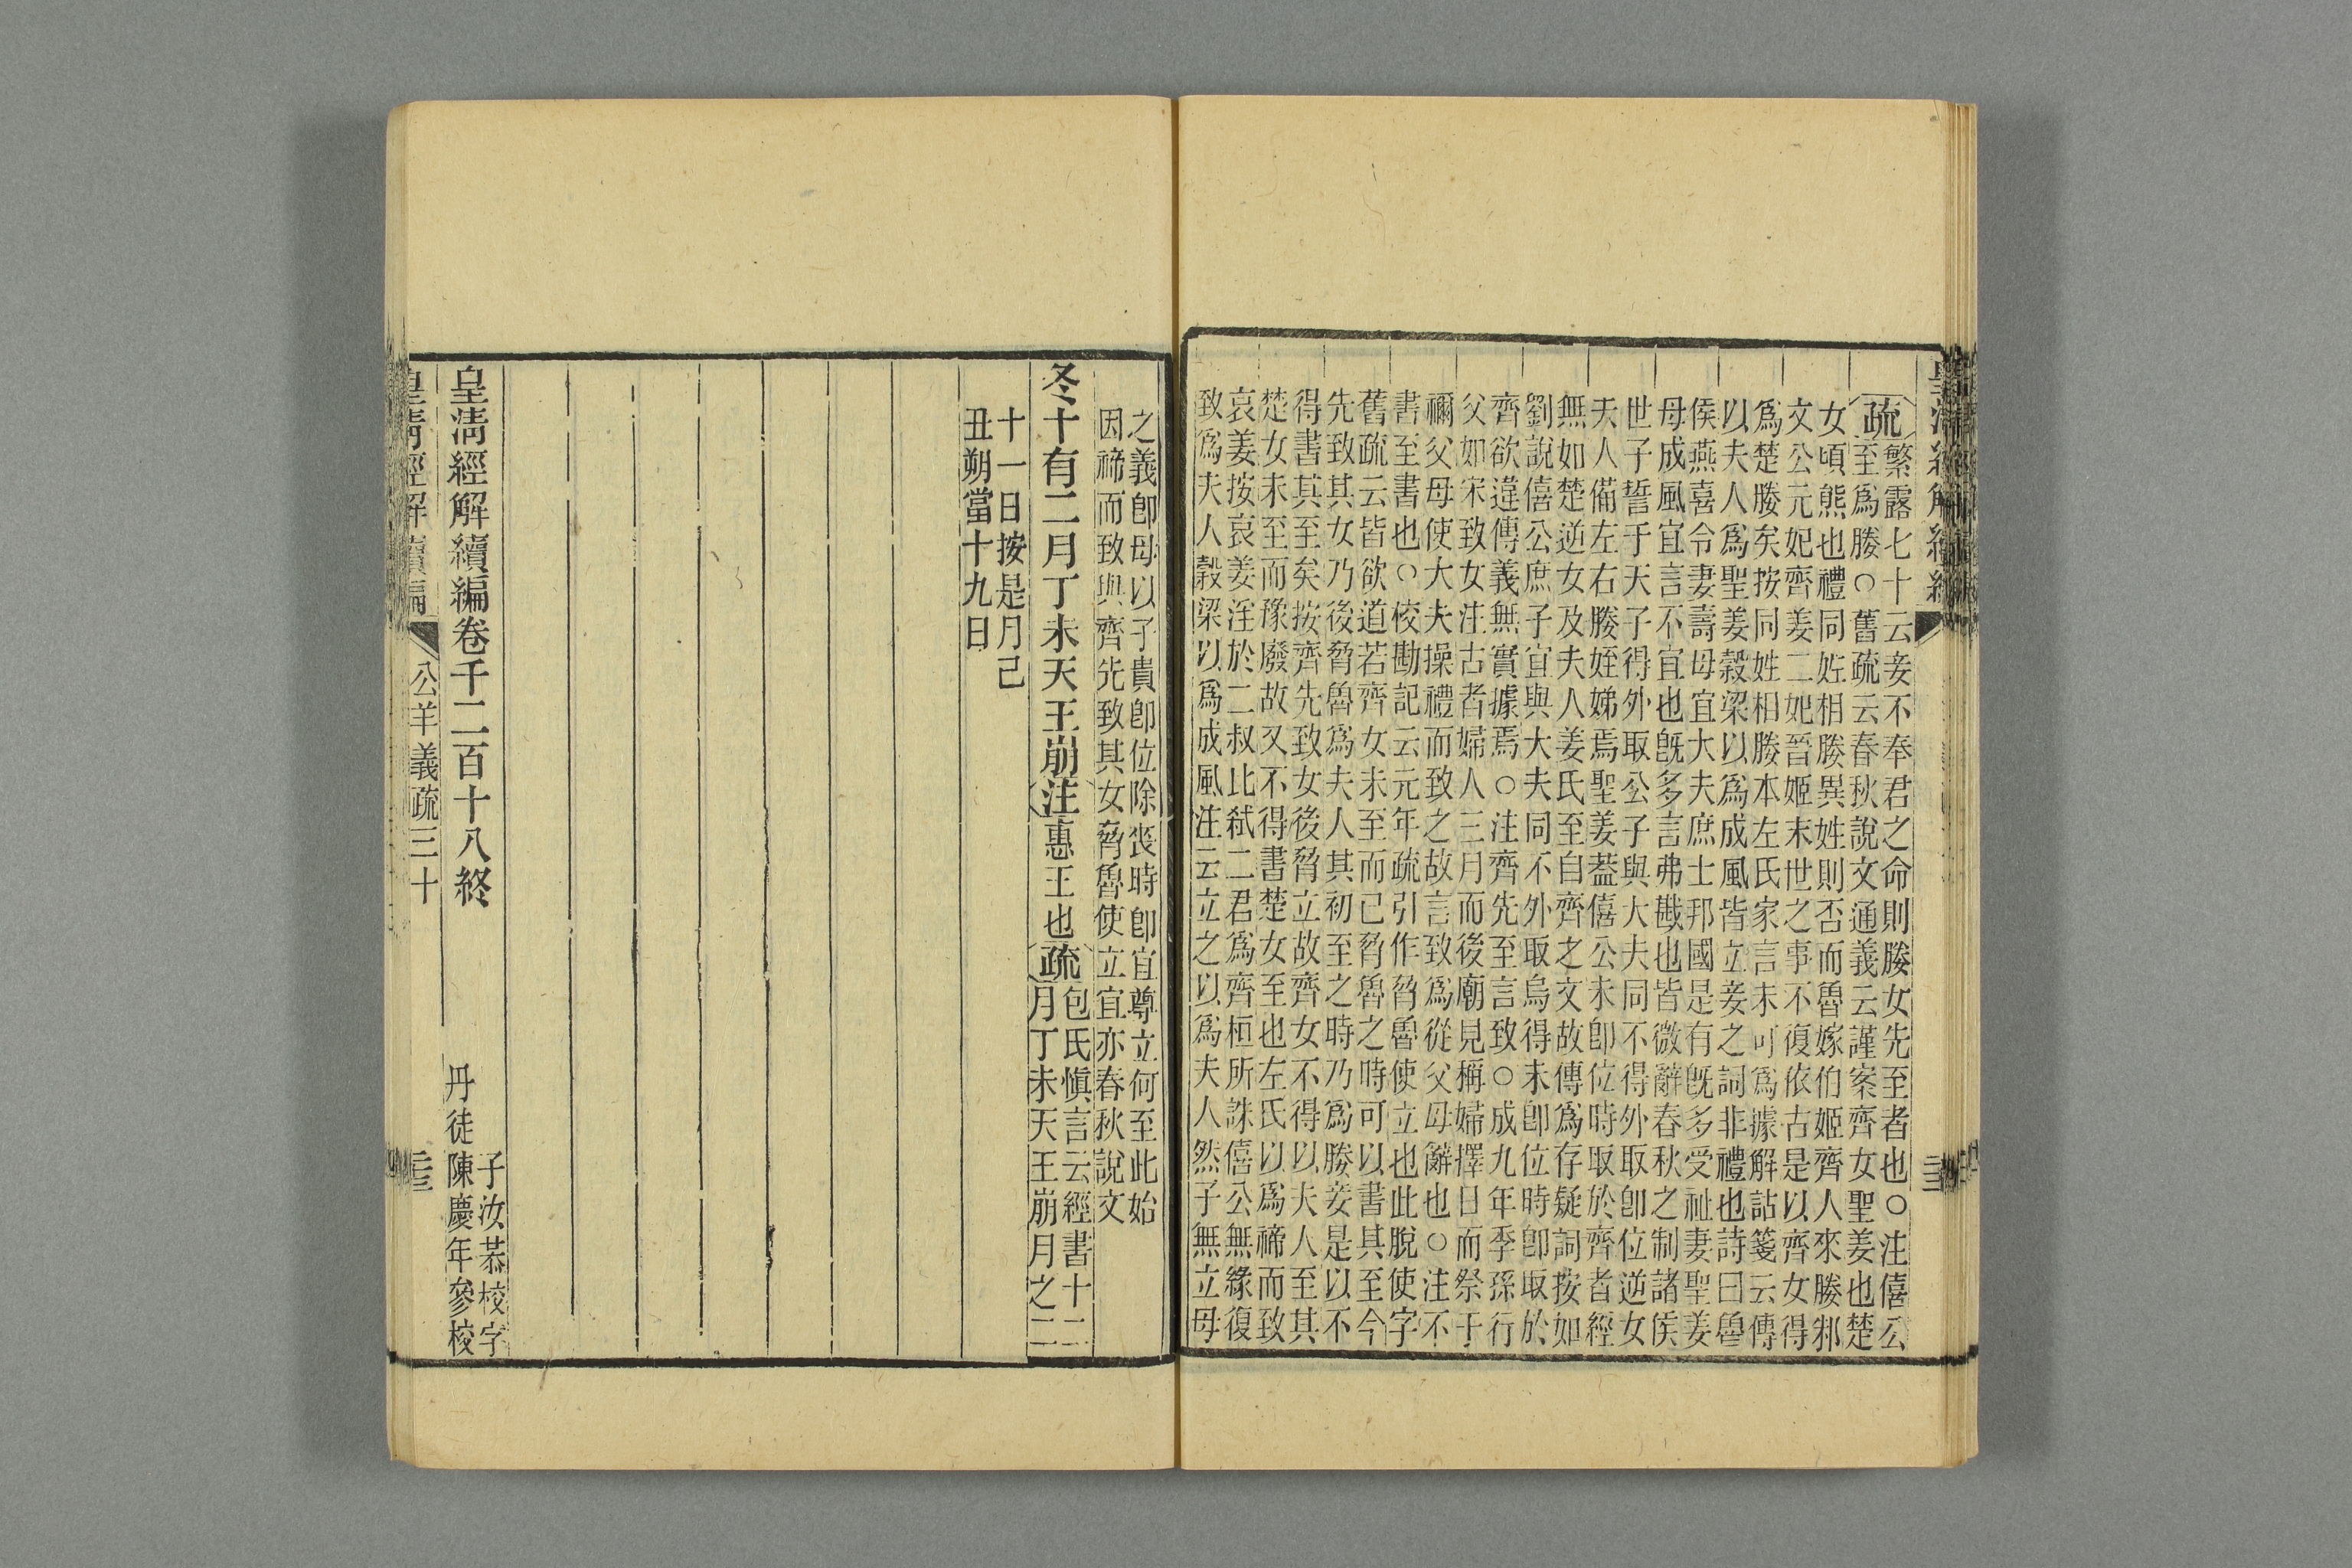 皇清經解續編
疏
繁露七十云妾不奉君之命則媵女先至者也○注僖公
至爲媵○舊疏云春秋說文通義云謹案齊女聖姜也楚
女頃熊也禮同姓相媵異姓則否而魯嫁伯姬齊人來媵邾
文公元妃齊姜二妃晉姬末世之事不復依古是以齊女得
爲楚媵矣按同姓相媵本左氏家言未可爲據解詁箋云傳
以夫人爲聖姜穀梁以爲成風皆立妾之詞非禮也詩曰魯
侯燕喜令妻壽母宜大夫庶士邦國是有旣多受祉妻聖姜
母成風宜言不宜也旣多言弗戩也皆微辭春秋之制諸侯
世子誓于天子得外取公子與大夫同不得外取卽位逆女
夫人備左右媵姪娣焉聖姜蓋僖公未卽位時取於齊者經
無如楚逆女及夫人姜氏至自齊之文故傳爲存疑詞按如
劉說僖公庶子宜與大夫同不外取烏得未卽位時卽取於
齊欲違傳義無實據焉○注齊先至言致○成九年季孫行
父如宋致女注古者婦人三月而後廟見稱婦擇日而祭于
禰父母使大夫操禮而致之故言致爲從父母辭也○注不
書至書也○校勘記云元年疏引作脅魯使立也此脫使字
舊疏云皆欲道若齊女未至而已脅魯之時可以書其至今
先致其女乃後脅魯爲夫人其初至之時乃爲媵妾是以不
得書其至矣按齊先致女後脅立故齊女不得以夫人至其
楚女未至而豫廢故又不得書楚女至也左氏以爲禘而致
哀姜按哀姜淫於二叔比弒二君爲齊桓所誅僖公無緣復
致爲夫人穀梁以爲成風注云立之以爲夫人然子無立母
之義卽母以子貴卽位除喪時卽宜尊立何至此始
因禘而致與齊先致其女脅魯使立宜亦春秋說文
冬十有二月丁未天王崩注惠王也疏
包氏愼言云經書十二
月丁未天王崩月之二
十一日按是月己
丑朔當十九日
皇清經解續編卷千二百十八終
子汝恭校字
丹徒陳慶年參校
皇清經解續編 公羊義疏三十